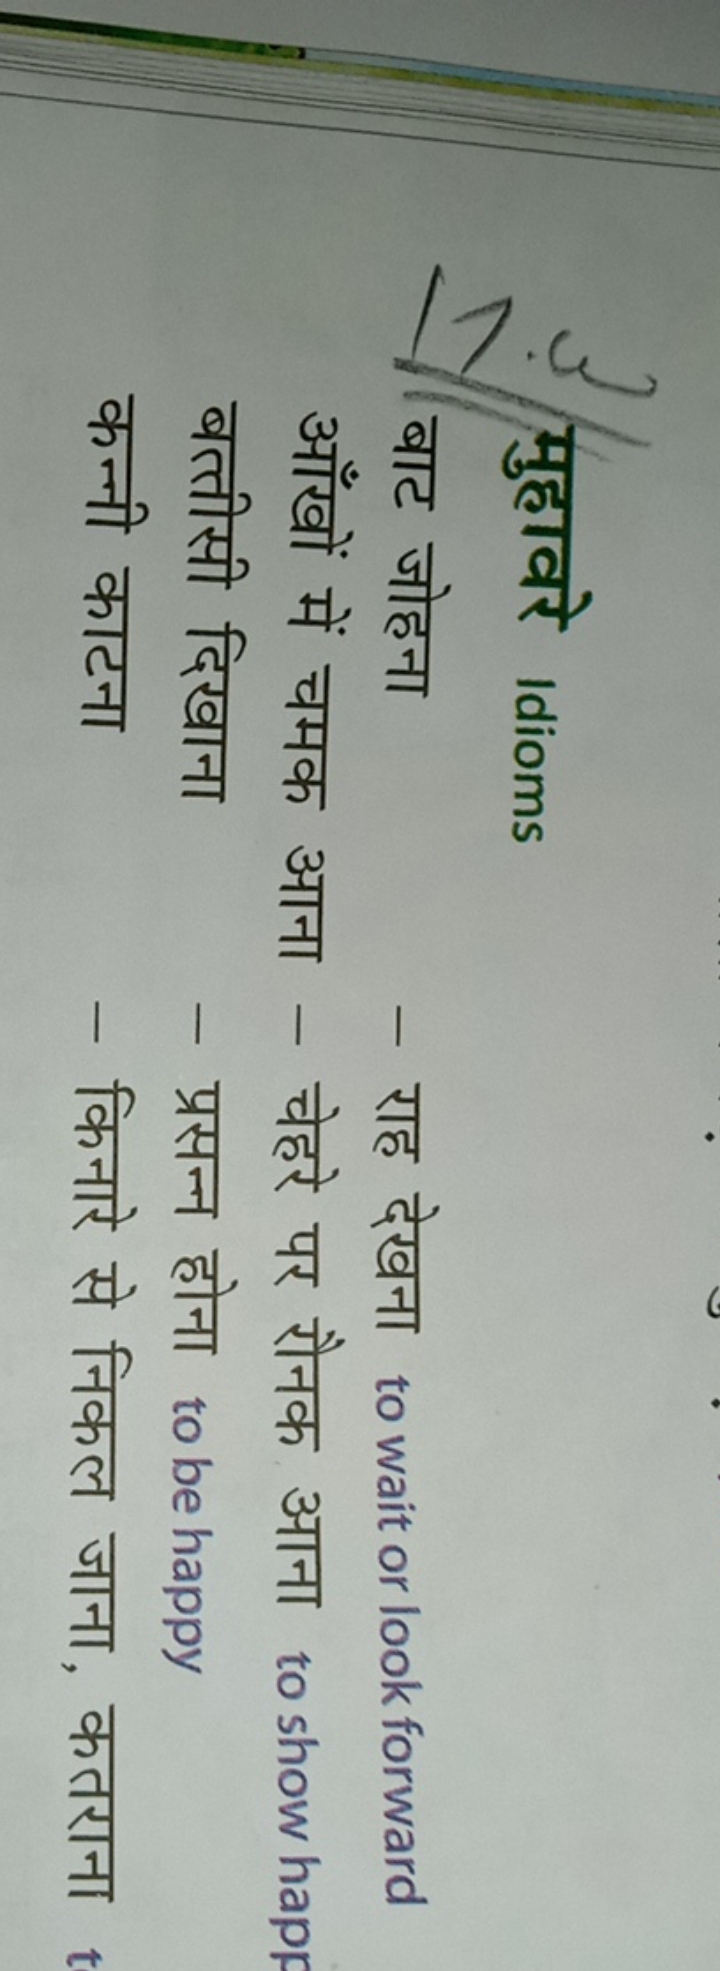 मुहावरे Idioms
बाट जोहना – राह देखना to wait or look forward
आँखों में चमक आना – चेहरे पर रौनक आना to show happ
बत्तीसी दिखाना – प्रसन्न होना to be happy
कन्नी काटना – किनारे से निकल जाना, कतराना t